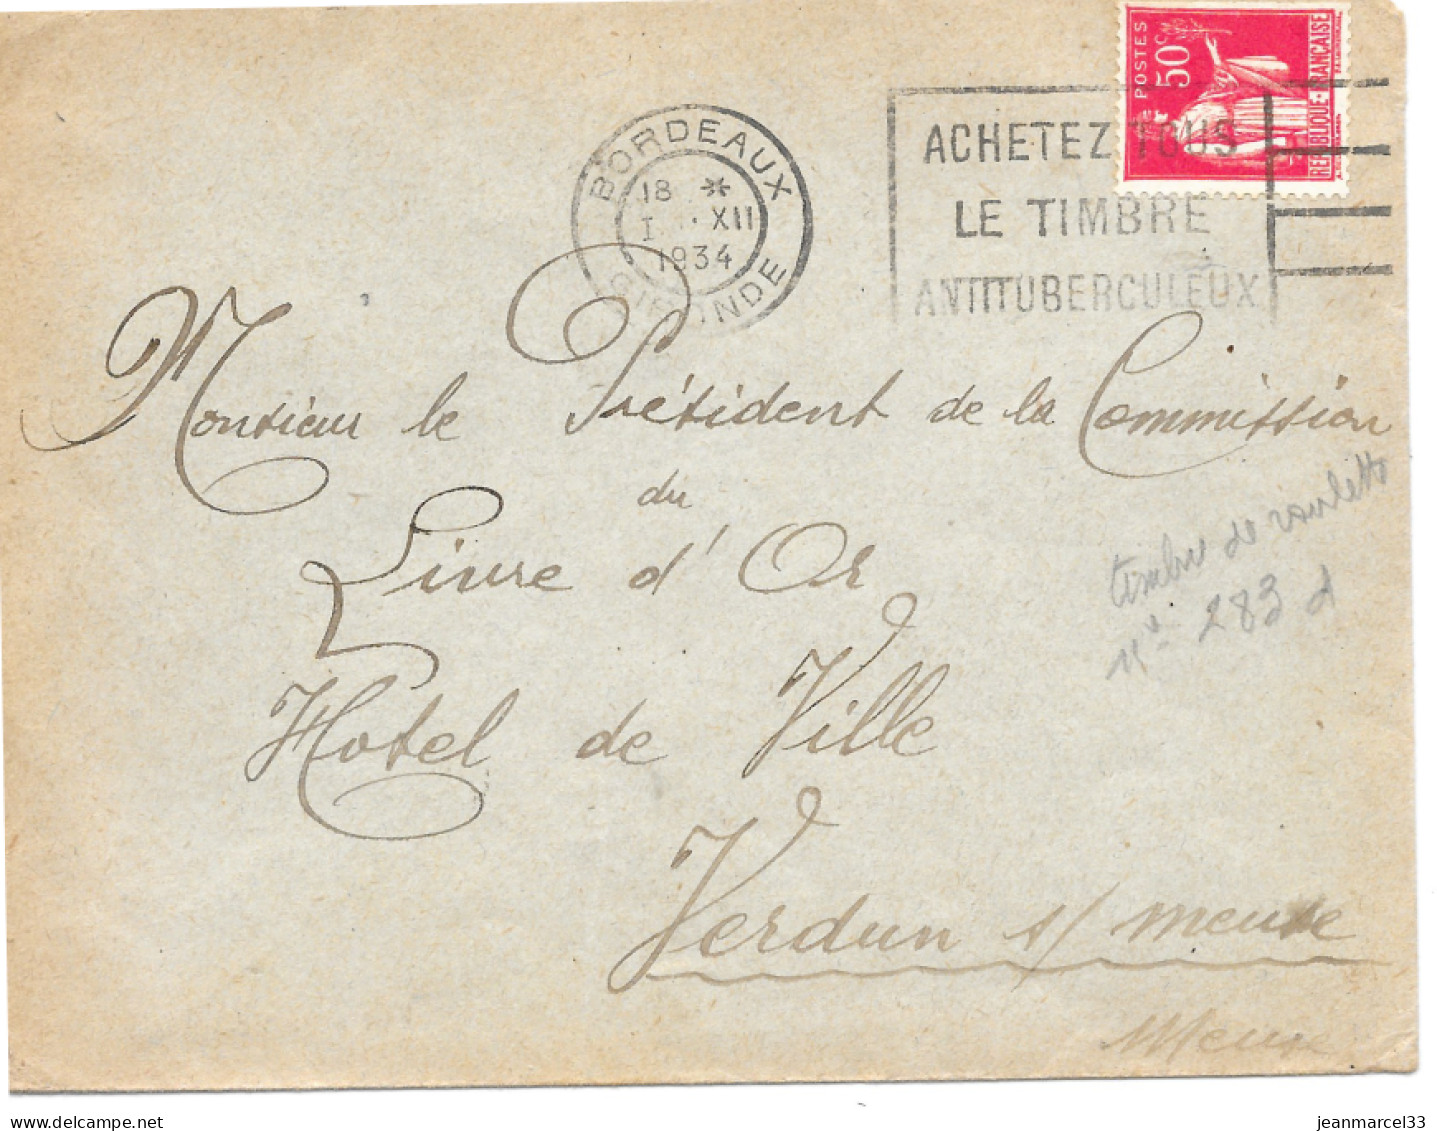 POSTES
50 C.
REPUBLIQUE·FRANÇAISE
BORDEAUX
18 *
I XII
1934
GIRONDE
ACHETEZ TOUS
LE TIMBRE
ANTITUBERCULEUX
Monsieur le Président de la Commission
du
Livre d'Or
Hotel de Ville
Verdun s/ meuse
Meuse
timbre de roulette
n° 283 d
delcampe.net
jeanmarcel33